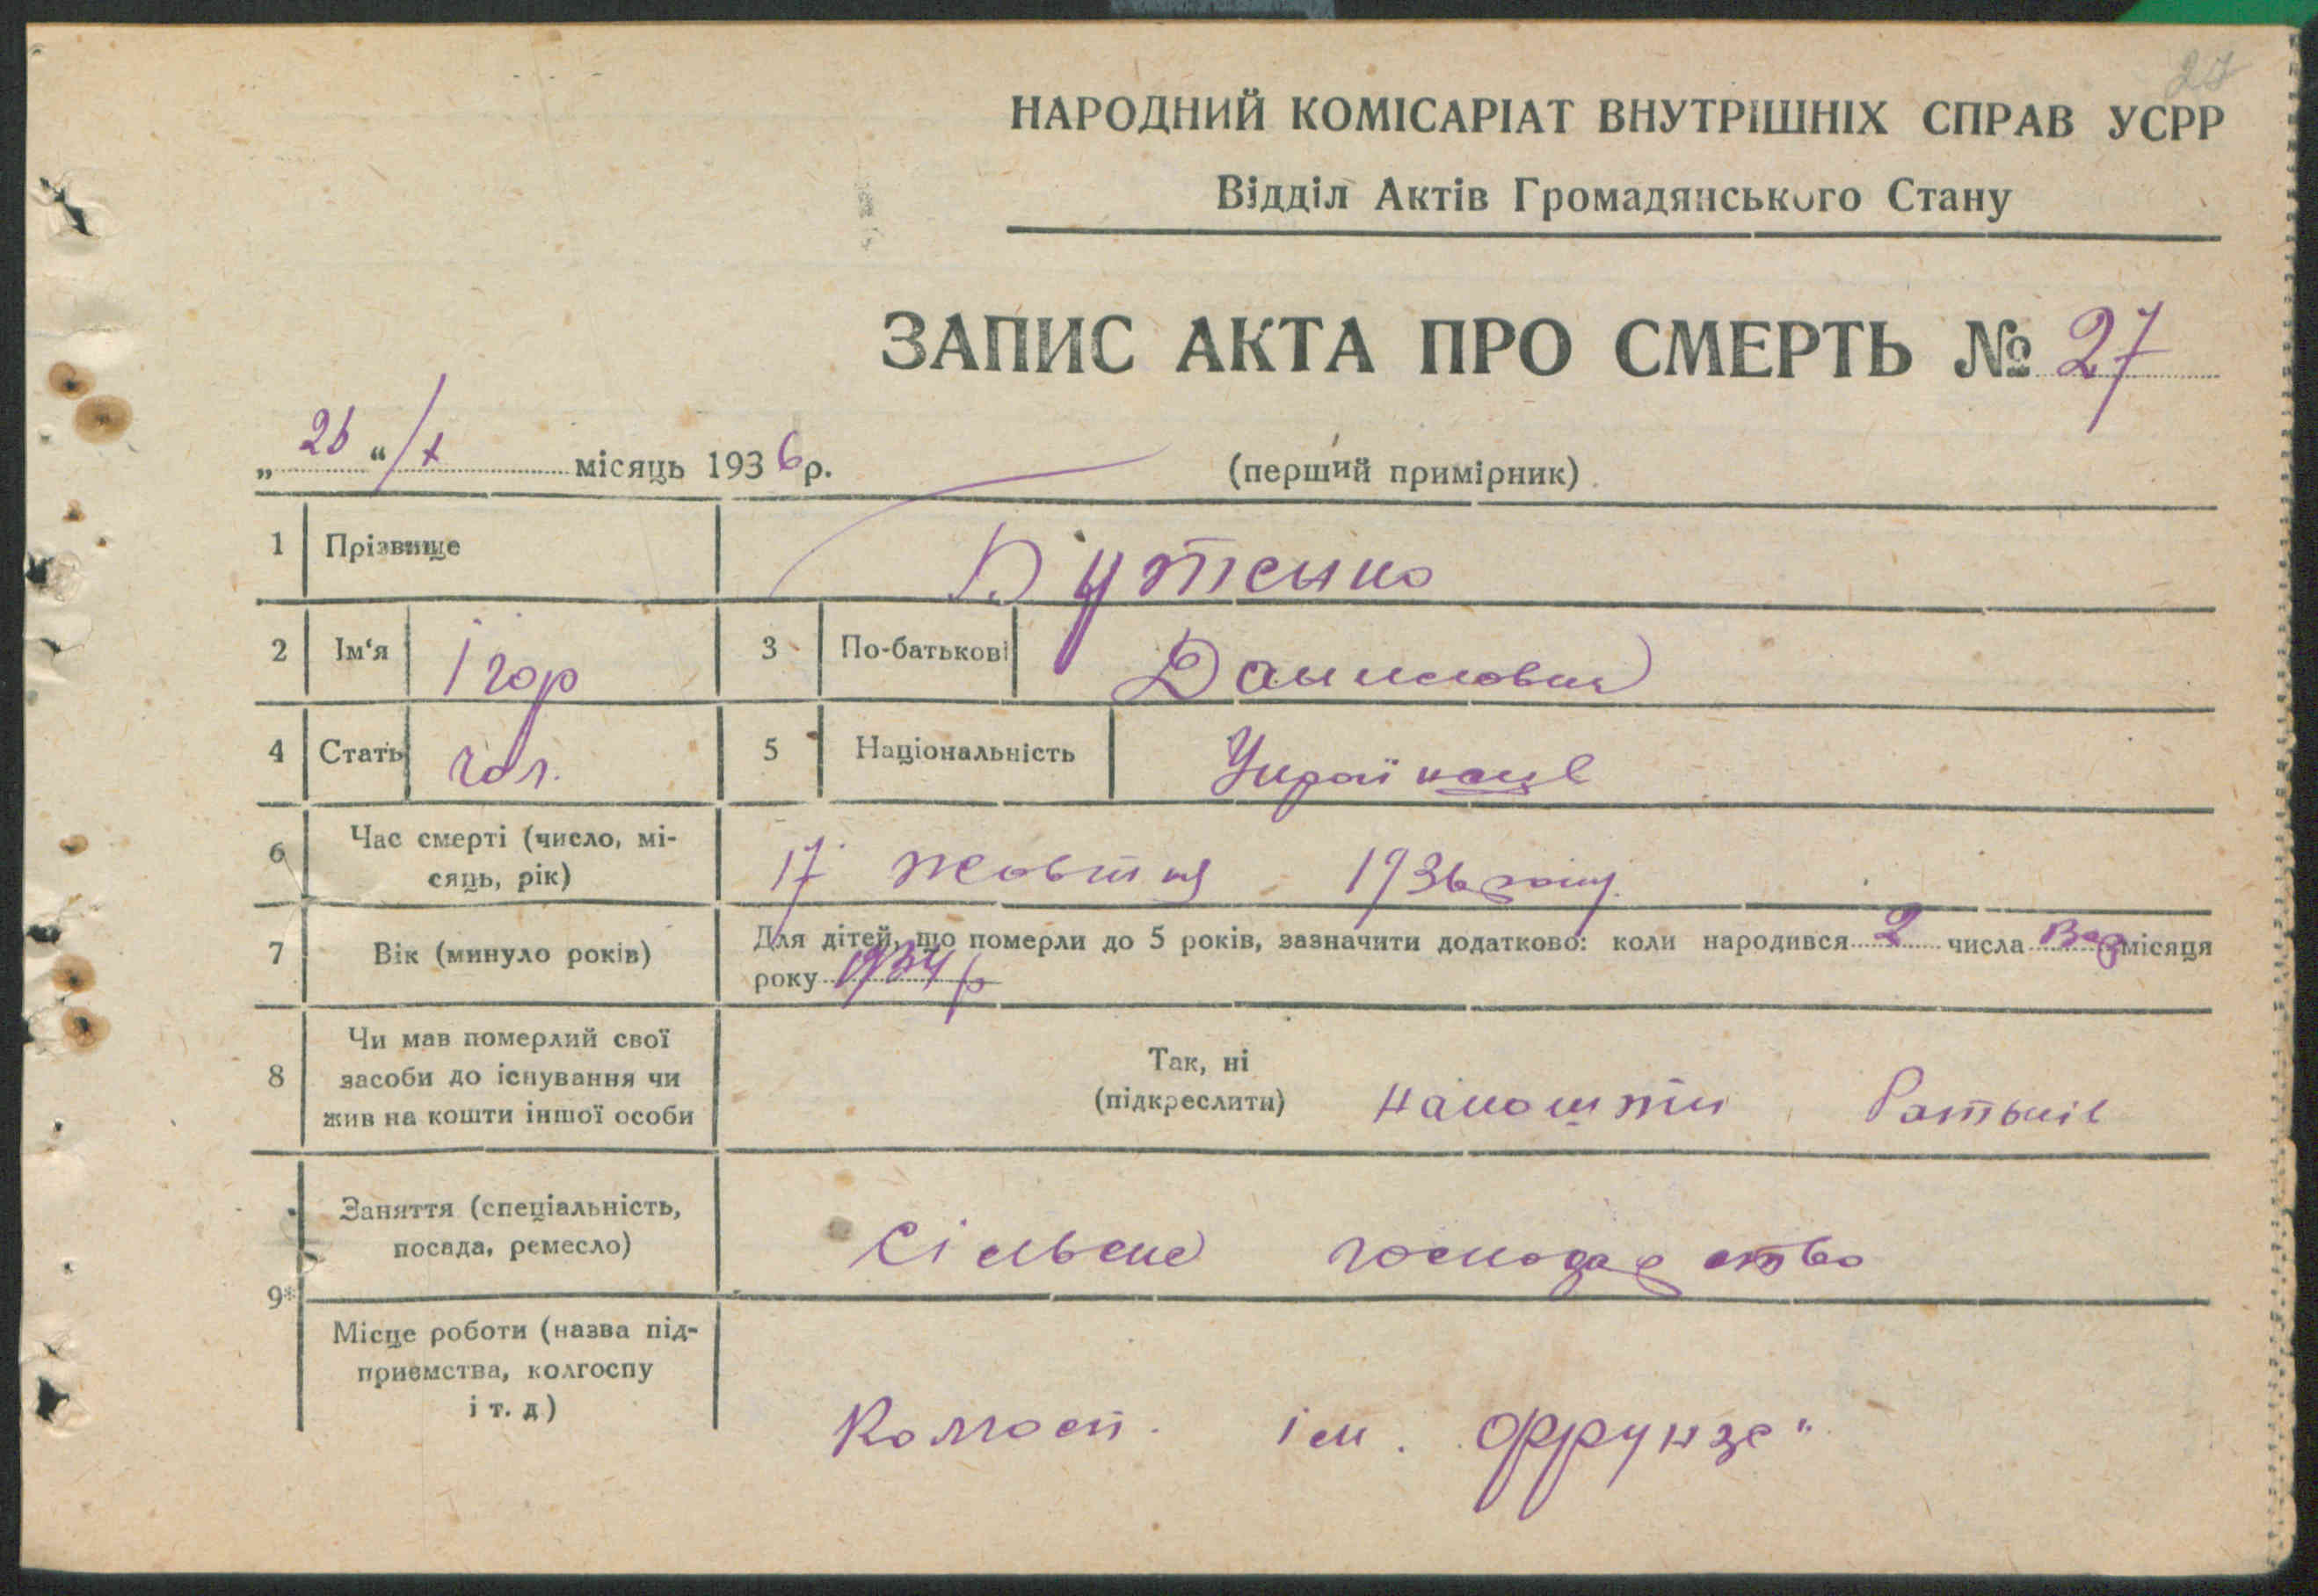 27
НАРОДНИЙ КОМІСАРІАТ ВНУТРІШНІХ СПРАВ УСРР
Відділ Актів Громадянського Стану
ЗАПИС АКТА ПРО СМЕРТЬ № 27
„ 26 “ / X місяць 1936 р.
(перший примірник)
1 Прізвище Бутенко
2 Ім‘я Ігор 3 По-батькові Данилович
4 Стать чол. 5 Національність Українець
6 Час смерті (число, мі-
сяць, рік) 17 жовтня 1936 року.
7 Вік (минуло років) Для дітей, що померли до 5 років, зазначити додатково: коли народився 2 числа місяця
року 1934 р
8 Чи мав померлий свої
засоби до існування чи
жив на кошти іншої особи
Так, ні
(підкреслити) на кошти Батьків
9* Заняття (спеціальність,
посада, ремесло) Сільське господарство
Місце роботи (назва під-
приємства, колгоспу
і т. д) Колгосп. ім. Фрунзе"